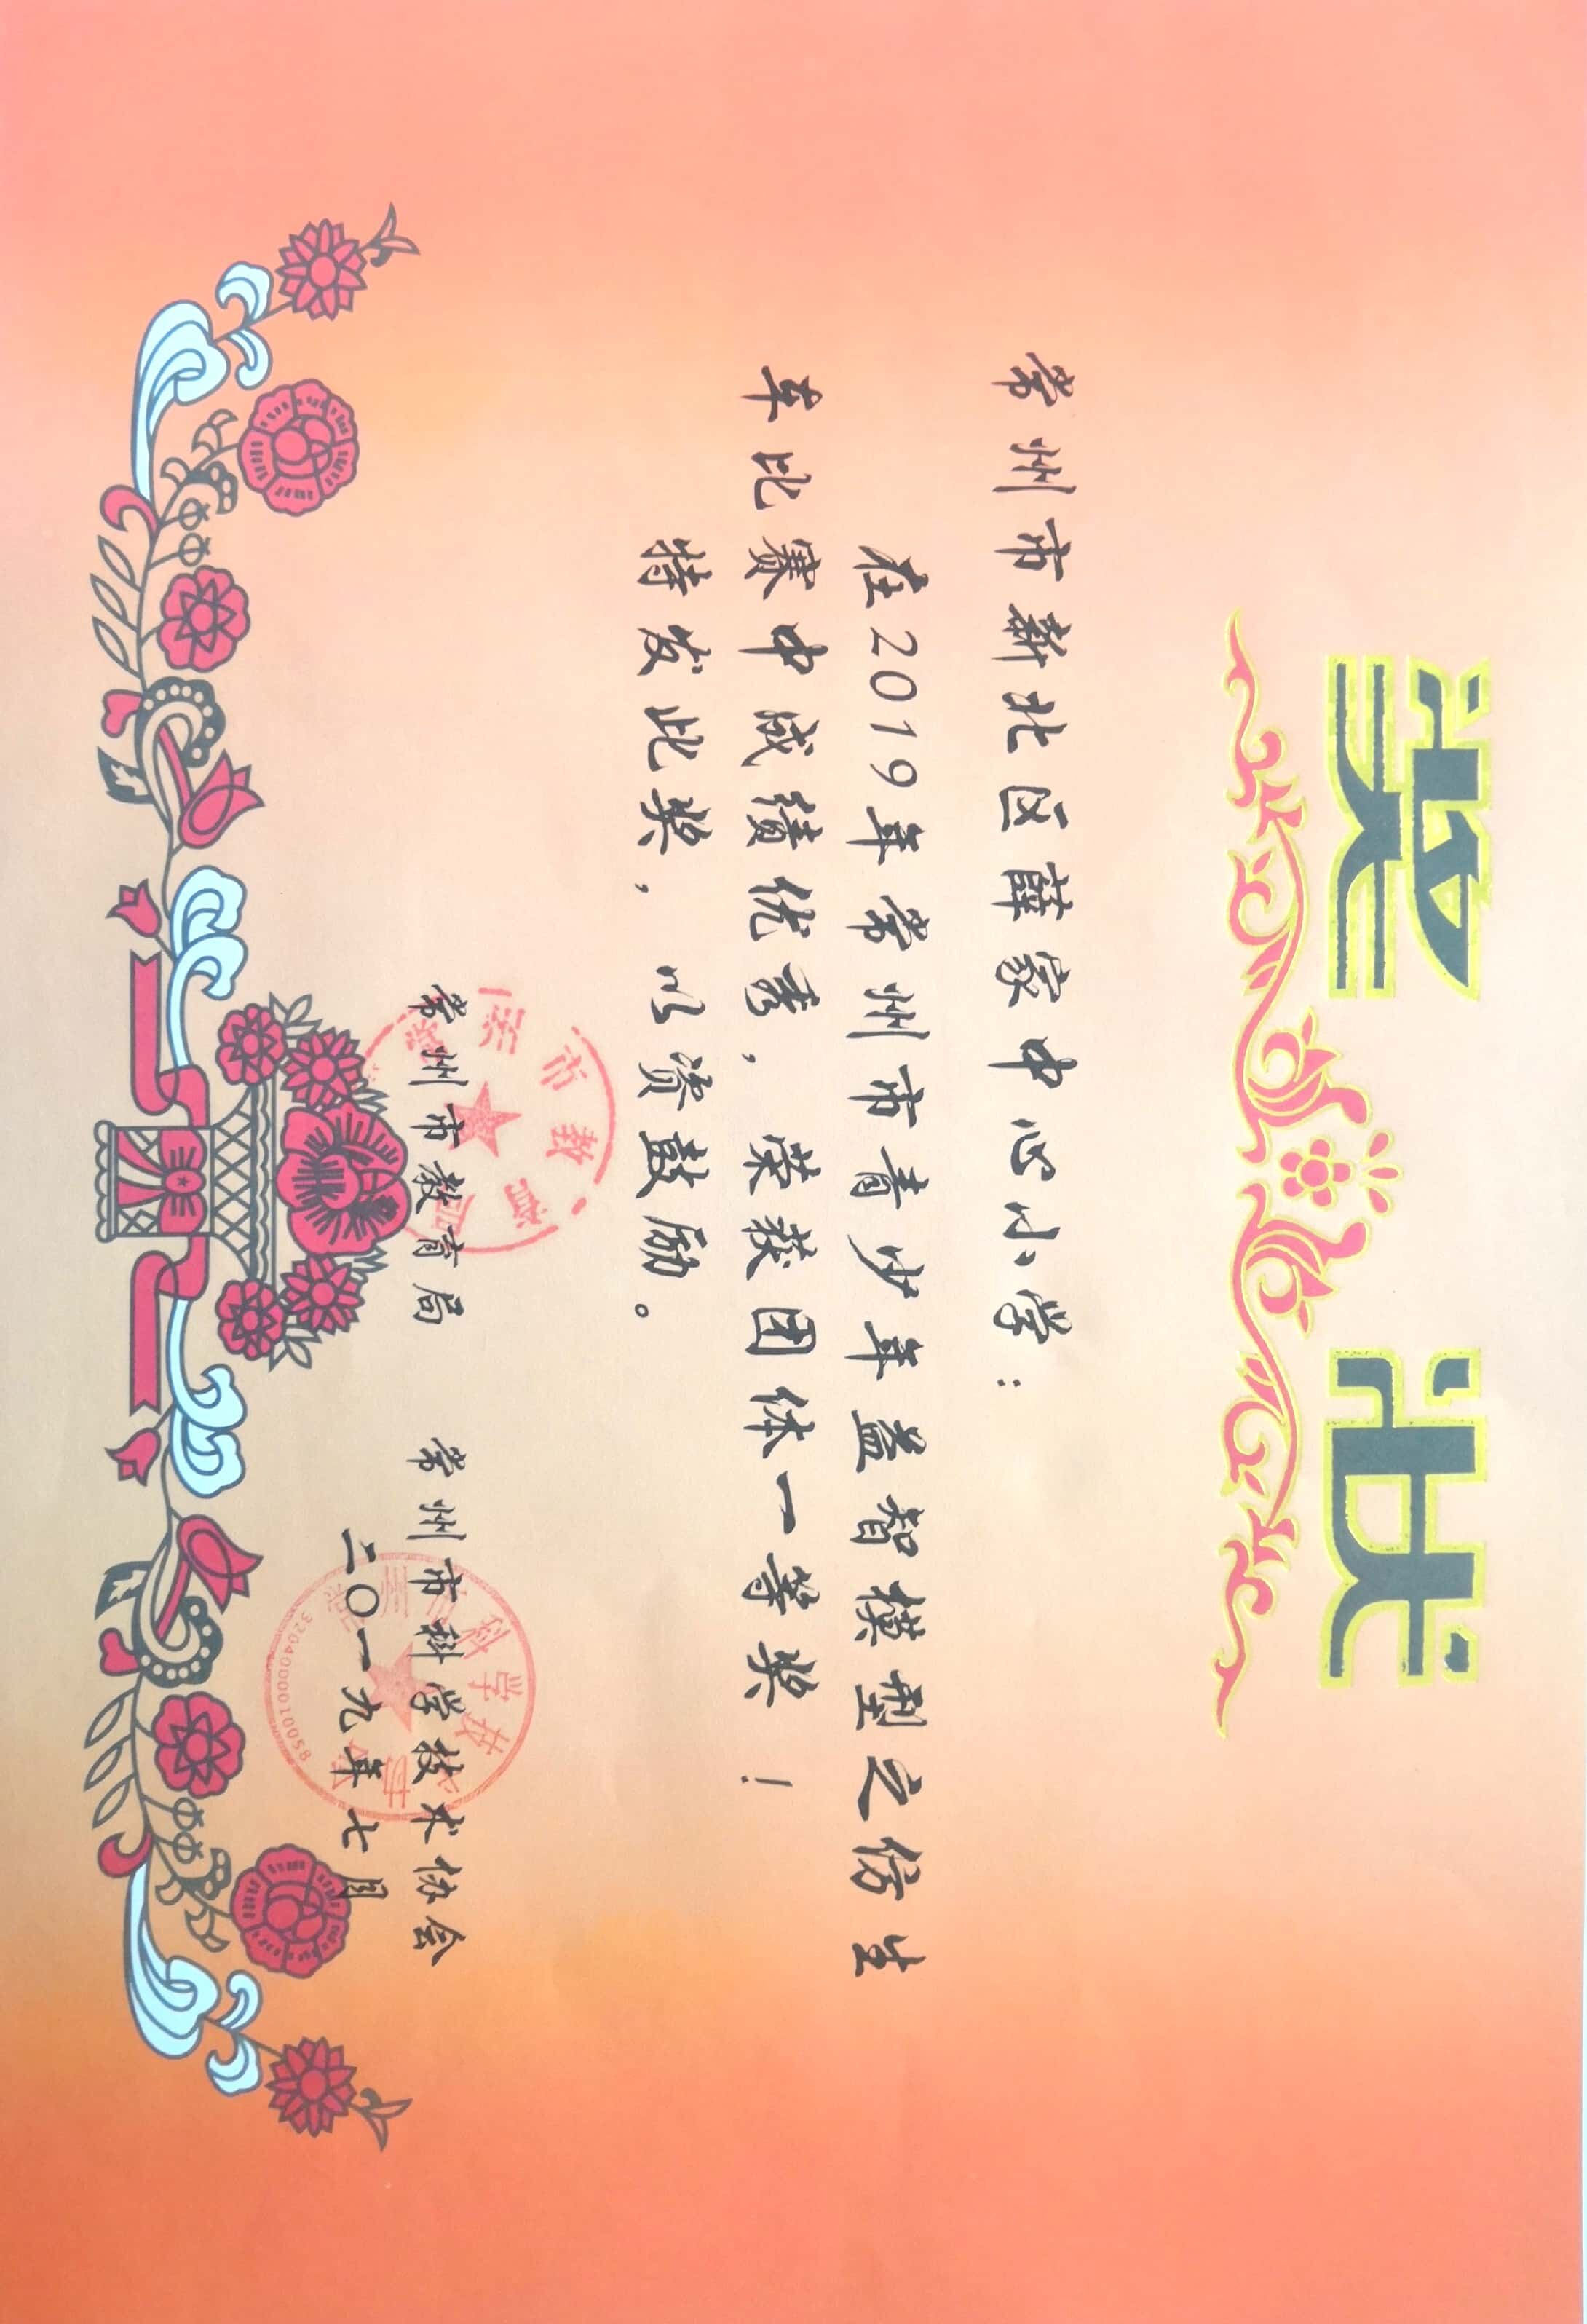 奖状
常州市新北区薛家中心小学：
在2019年常州市青少年益智模型之仿生
车比赛中成绩优秀，荣获团体一等奖！
特发此奖，以资鼓励。
常州市教育局 常州市科学技术协会
二〇一九年七月
3204000010058